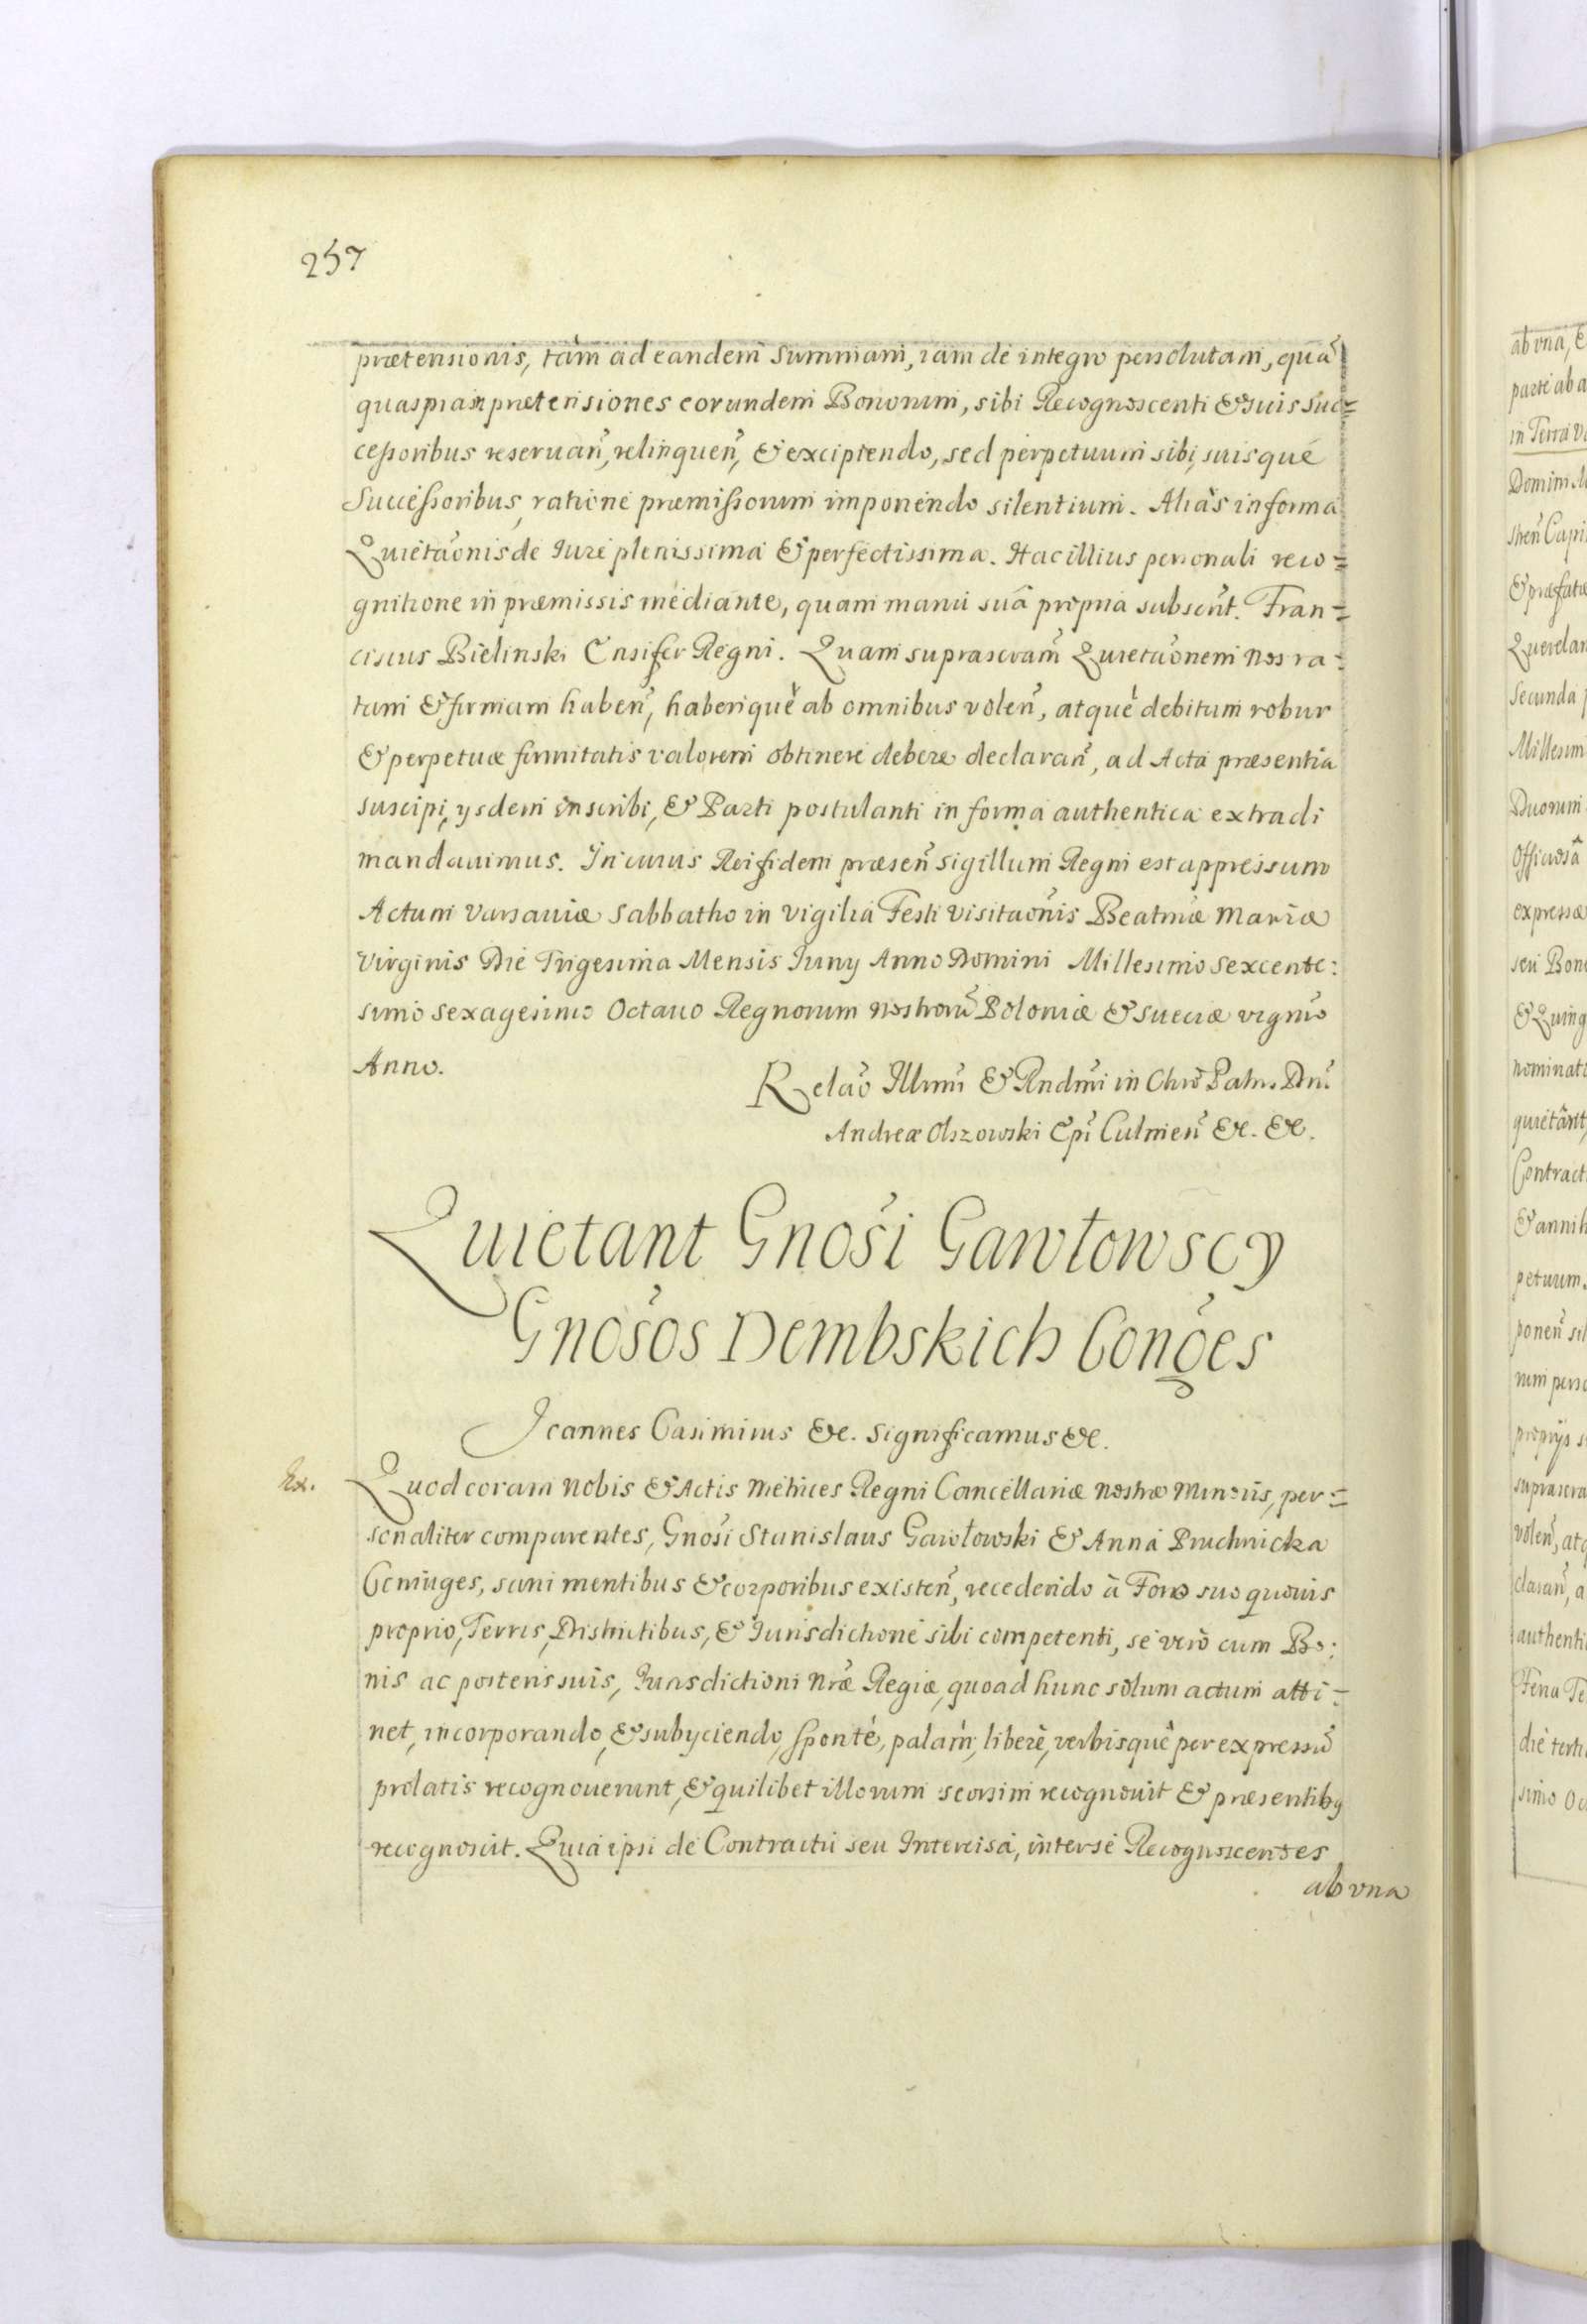 257
prætensionis, tam ad eandem Summam, iam de integro persolutam, quã
quaspiam prætensiones eorundem Bonorum, sibi Recognoscenti & suis suc=
cessoribus reseruan̄, relinquen̄, & excipiendo, sed perpetuum sibi, suisquè
Successoribus, ratione præmissorum imponendo silentium. Aliàs in forma
Quietaōnis de Iure plenissima & perfectissima. Hac illius personali reco=
gnitione in præmissis mediante, quam manu suâ propria subscrīt. Fran=
ciscus Bielinski Ensifer Regni. Quam suprascram̄ Quietaōnem Nos ra=
tam & firmam haben̄, haberiquè ab omnibus volen̄, atquè debitum robur
& perpetuæ firmitatis valorem obtinere debere declaran̄, ad Acta præsentia
suscipi, ysdem inscribi, & Parti postulanti in forma authentica extradi
mandauimus. In cuius Rei fidem præsen̄ sigillum Regni est appressum
Actum Varsauiæ Sabbatho in Vigilia Festi Visitaōnis Beatmæ Mariæ
Virginis Die Trigesima Mensis Iuny Anno Domini Millesimo Sexcente:
simo Sexagesimo Octauo Regnorum Nostrorū Poloniæ & Sueciæ vigmo
Anno.
Relaō Illmī & Rndmī in Chrō Patr. Dnī
Andreæ Olszowski Epī Culmen̄ &c. &c.
Quietant Gnosi Gawłowscy
Gnosos Dembskich Conges
Ioannes Casimirus &c. Significamus &c.
Ex.
Quod coram Nobis & Actis Metrices Regni Cancellariæ Nostræ Minoris, per=
sonaliter comparentes, Gnosi Stanislaus Gawłowski & Anna Pruchnicka
Coniuges, sani mentibus & corporibus existen̄, recedendo à Foro suo quouis
proprio, Terris, Districtibus, & Iurisdictione sibi competenti, se verò cum Bo:
nis ac posteris suis, Iurisdictioni Nræ Regiæ, quoad hunc solum actum atti=
net, incorporando, & subyciendo, sponte, palam, liberè, verbisquè per expressū
prolatis recognouerunt, & quilibet illorum seorsim recognouit & præsentibq
recognoscit. Quia ipsi de Contractu seu Intercisa, inter se Recognoscentes
ab vna